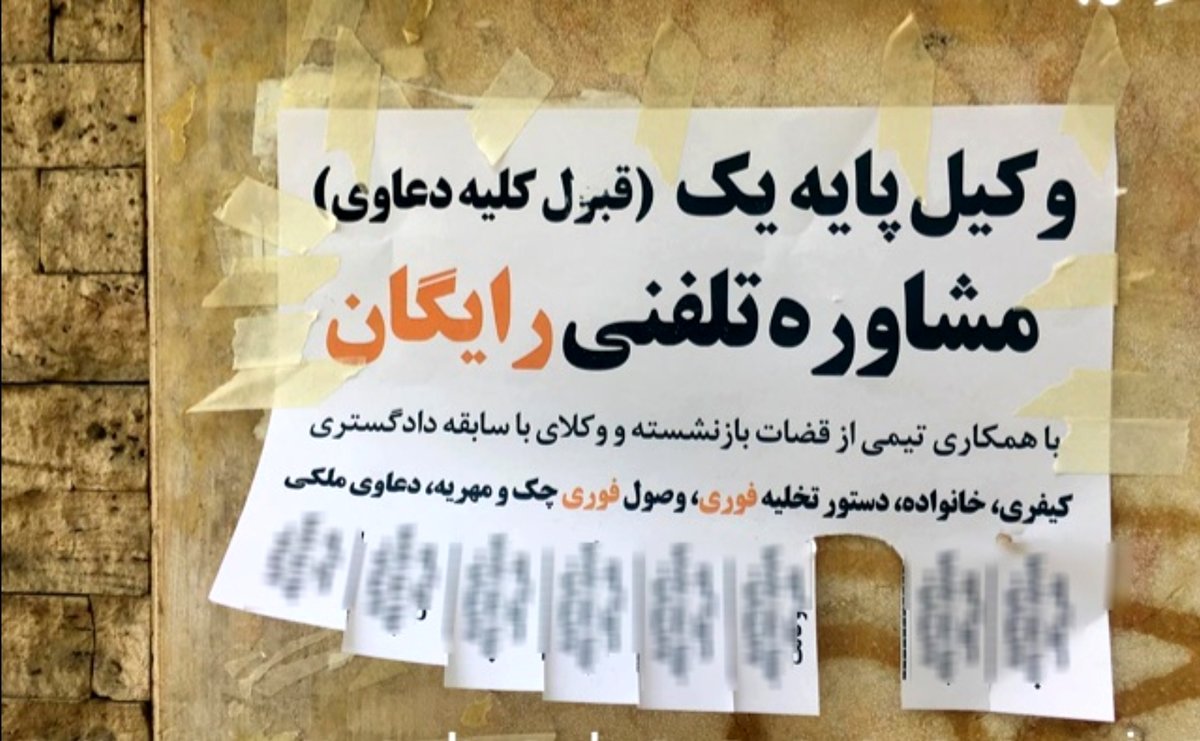 وکیل پایه یک (قبول کلیه دعاوی)
مشاوره تلفنی رایگان
با همکاری تیمی از قضات بازنشسته و وکلای با سابقه دادگستری
کیفری، خانواده، دستور تخلیه فوری، وصول فوری چک و مهریه، دعاوی ملکی